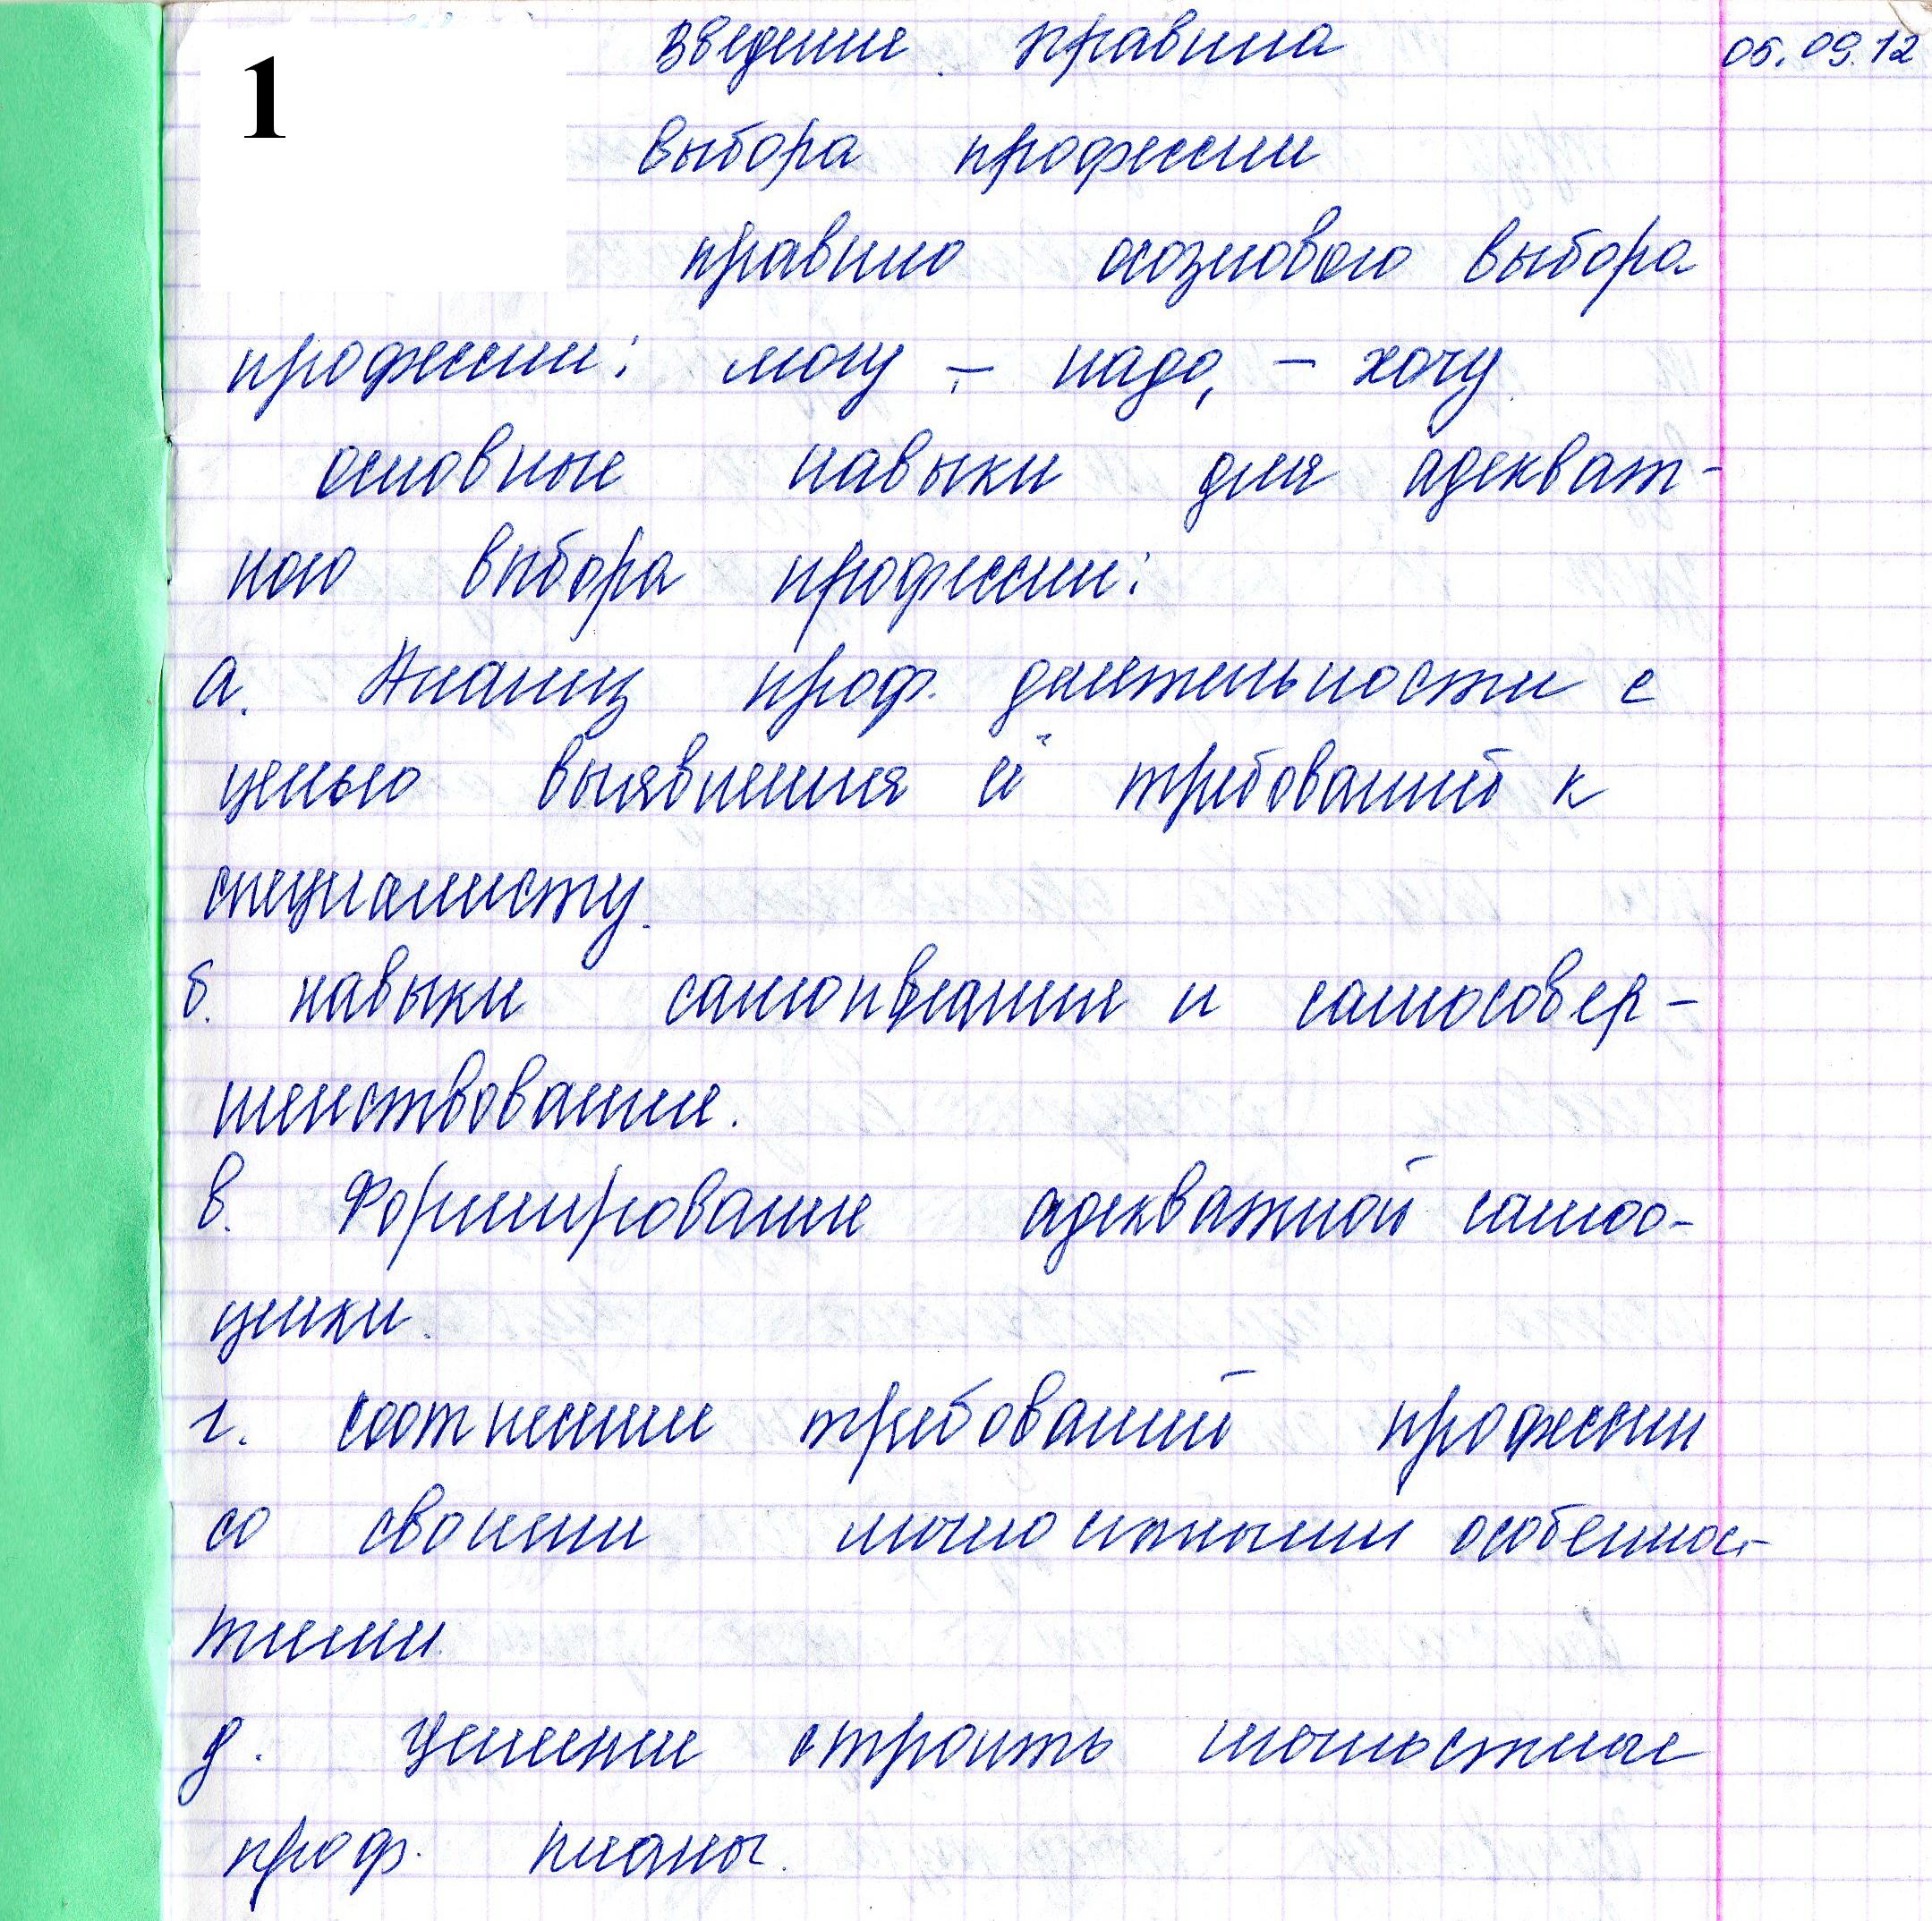 1
Введение. правила 05.09.12
выбора профессии
правило осознового выбора
профессии: могу – надо, – хочу
основные навыки для адекват-
ного выбора профессии:
а. Анализ проф. деятельности с
целью выявления её требований к
специалисту.
б. навыки и самосовер-
шенствование.
в. Формирование адекватной самоо-
ценки.
г. соотнесении требований профессии
со своими личностными особеннос-
тями.
д. Умение строить личностные
проф. планы.